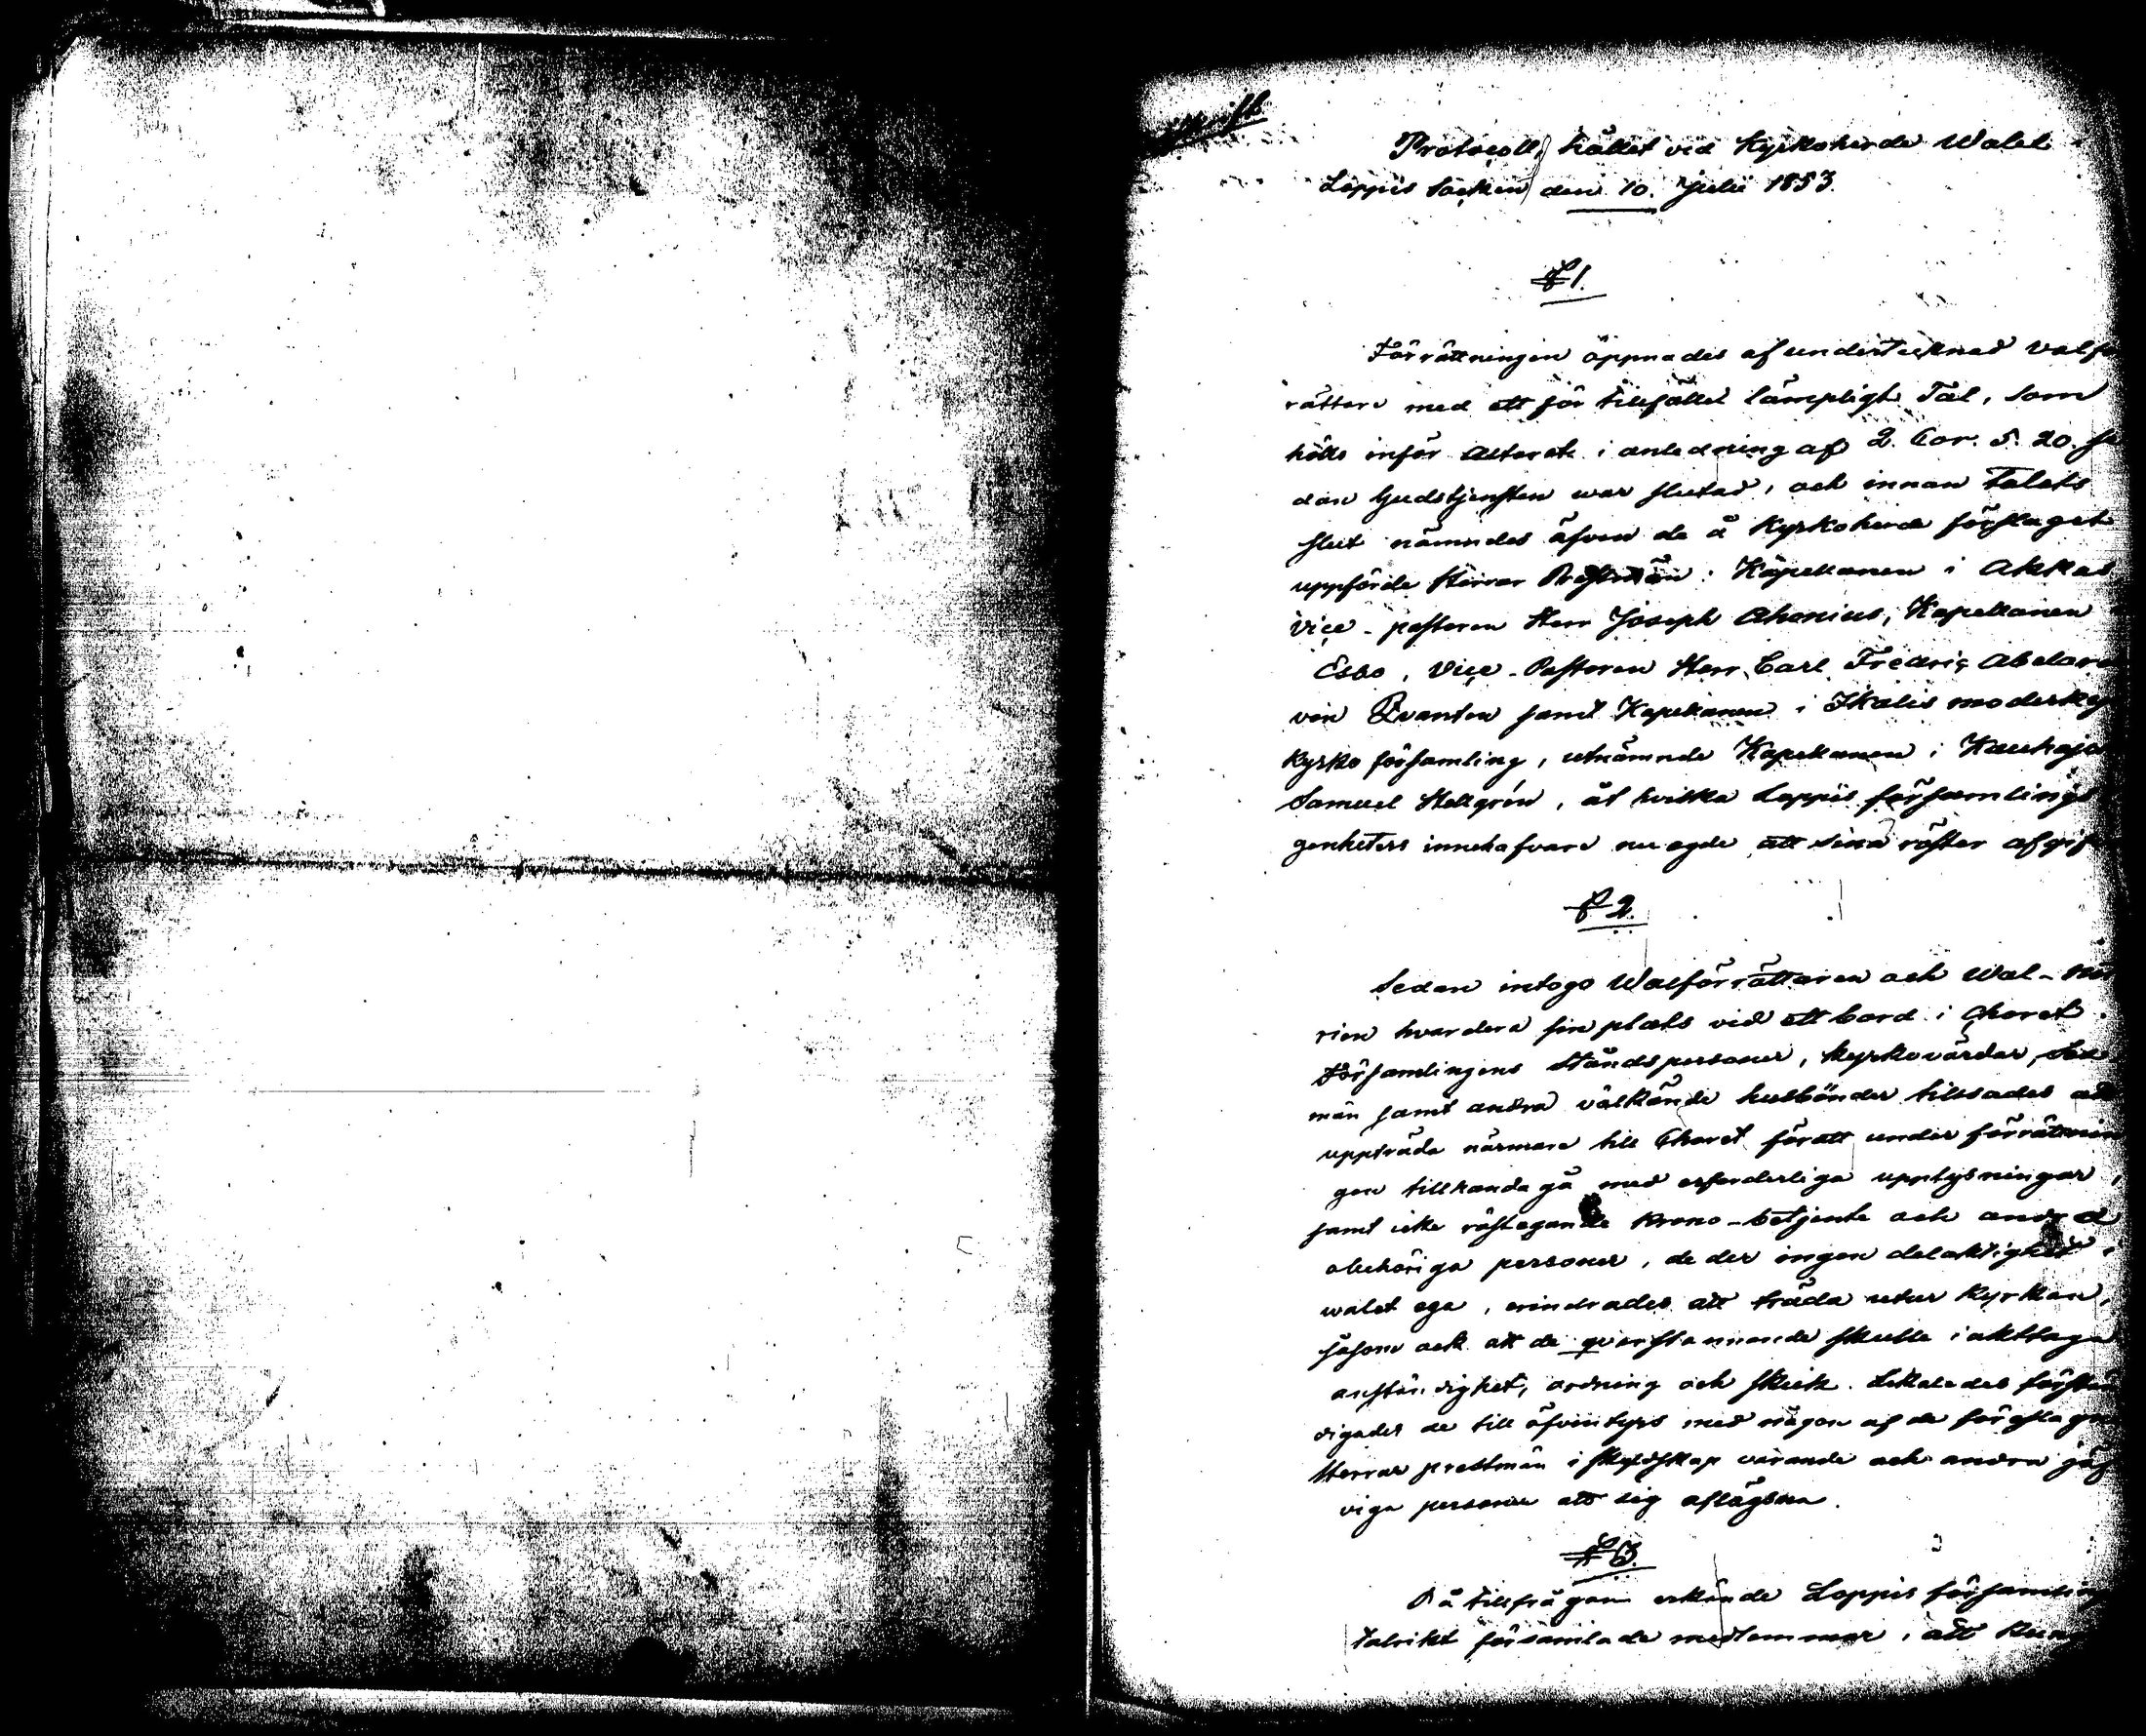 Protocoll, hållet vid Kyrkoherde Walet
Loppis Socken den 10. Julii 1853.
§ 1.
Förrättningen öppnades af undertecknad valfö
rättare med ett för tillfället lämpligt Tal, som
hölls inför Altaret i anledning af 2. Cor. 5. 20. se
dan Gudstjensten war slutad, och innan Talets
slut nämndes äfven de å Kyrkoherde förslaget
uppförde Herrar Prestmän: Kapellanen i Akkas
Viçe-pastoren Herr Joseph Ahonius, Kapellanen
Esbo, Viçe-Pastoren Herr Carl Fredriç Abelard
von Qvanten samt Kapellanen i Ikalis moderky
kyrko församling, utnämnde Kapellanen i Kauhajo
Samuel Hellgrén, åt hvilka Loppis församling
genheters innehafvare nu egde att sina röster afgif
§ 2.
Sedan intogo Walförrättaren och Wal-No
rien hvardera sin plats vid ett bord i Choret.
Församlingens Ståndspersoner, kyrkovärdar,
män samt andra välkände husbönder tillsades att
uppträda närmare till Choret för att under förrättnin
gen tillhanda gå med erforderliga upplysningar,
samt icke röstegande Krono-betjente och andra
obehöriga personer, de der ingen delaktighet i
walet ega, erindrades att träda utur Kyrkan,
såsom ock att de qvarstannande skulle iakttaga
anständighet, ordning och skick. Likaledes förstän
digades de till äfventyrs med någon af de föreslagne
Herrar prestmän i skyldskap varande och andra jäf
viga personer att sig aflägsna.
§ 3.
På tillfrågan erkände Loppis församling
talrikt församlade medlemmar, att kun